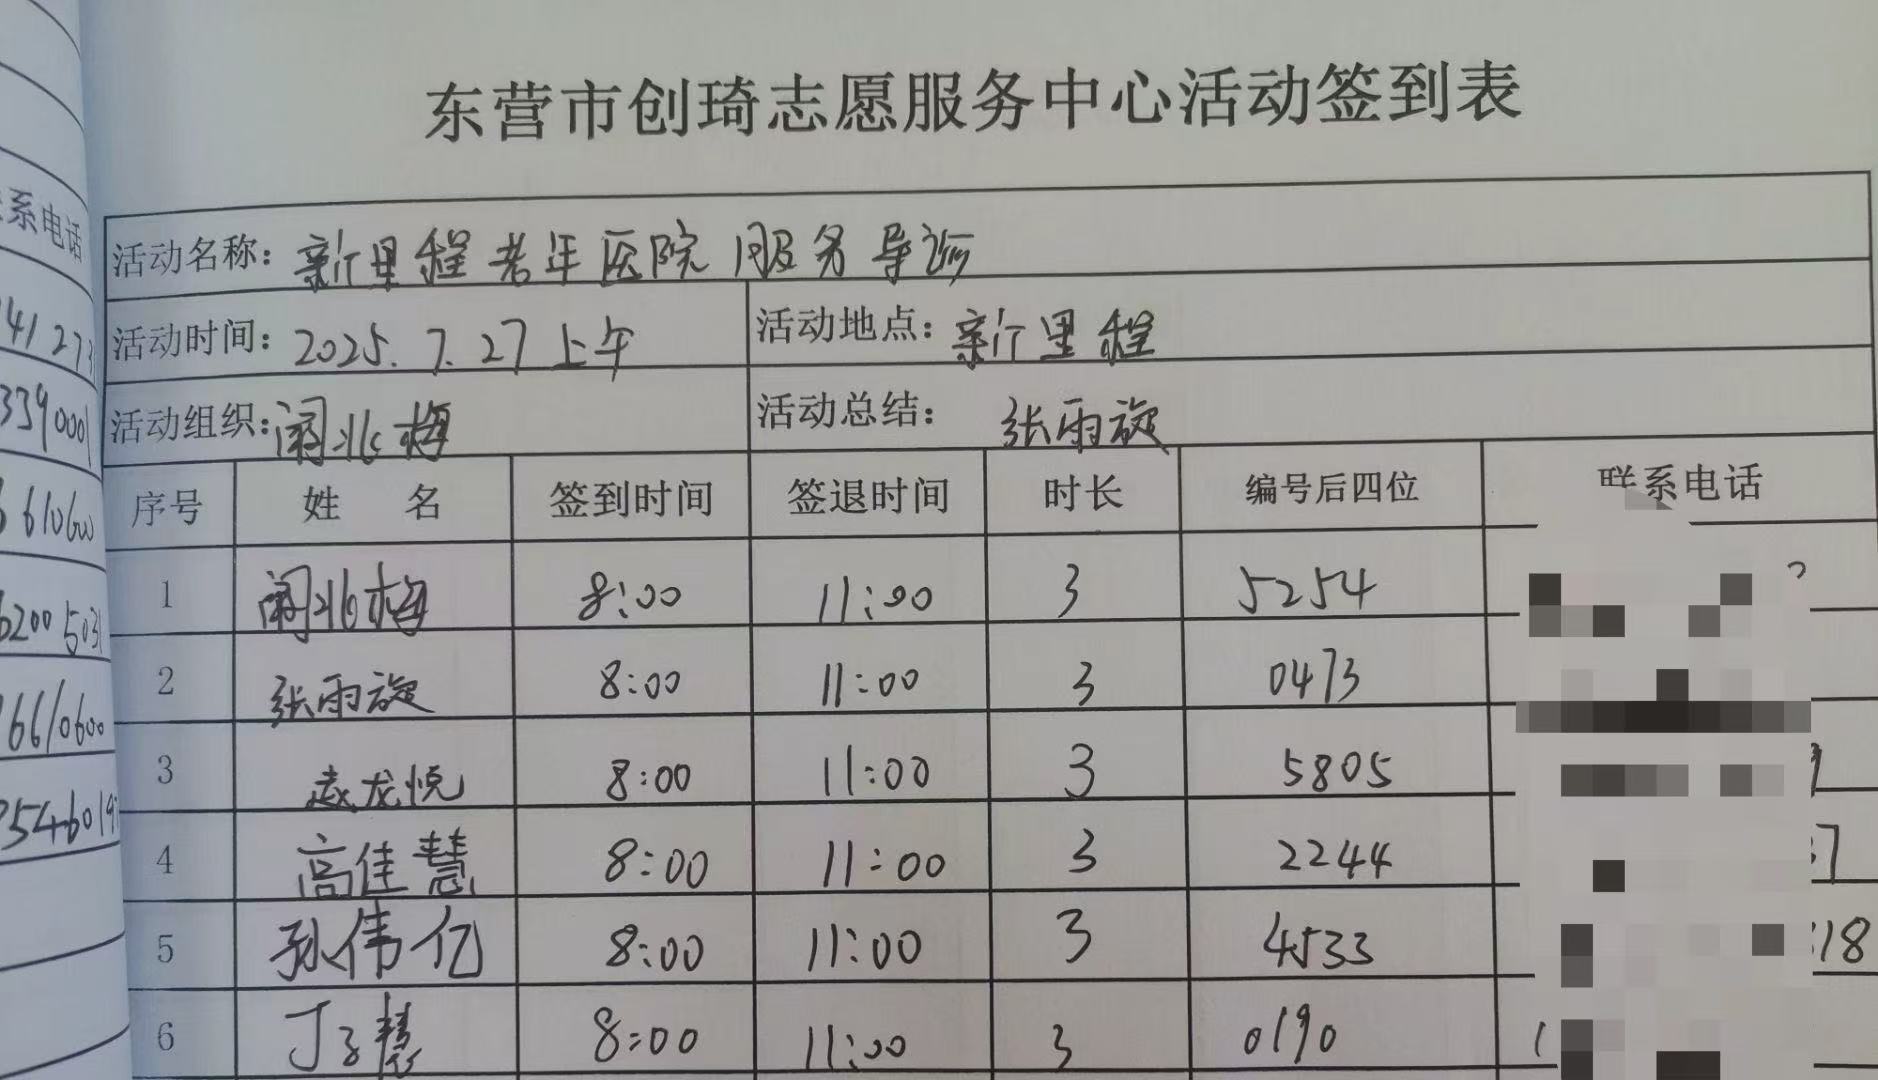 东营市创琦志愿服务中心活动签到表
活动名称：新里程老年医院服务导诊
活动时间：2025.7.27上午 活动地点：新里程
活动组织：阚兆梅 活动总结：张雨旋
序号 姓 名 签到时间 签退时间 时长 编号后四位 联系电话
1 阚兆梅 8:00 11:00 3 5254
2 张雨旋 8:00 11:00 3 0473
3 赵龙悦 8:00 11:00 3 5805
4 高佳慧 8:00 11:00 3 2244
5 孙伟亿 8:00 11:00 3 4533 18
6 丁子慧 8:00 11:00 3 0190
系电话
339000
661060
6200 5031
16610600